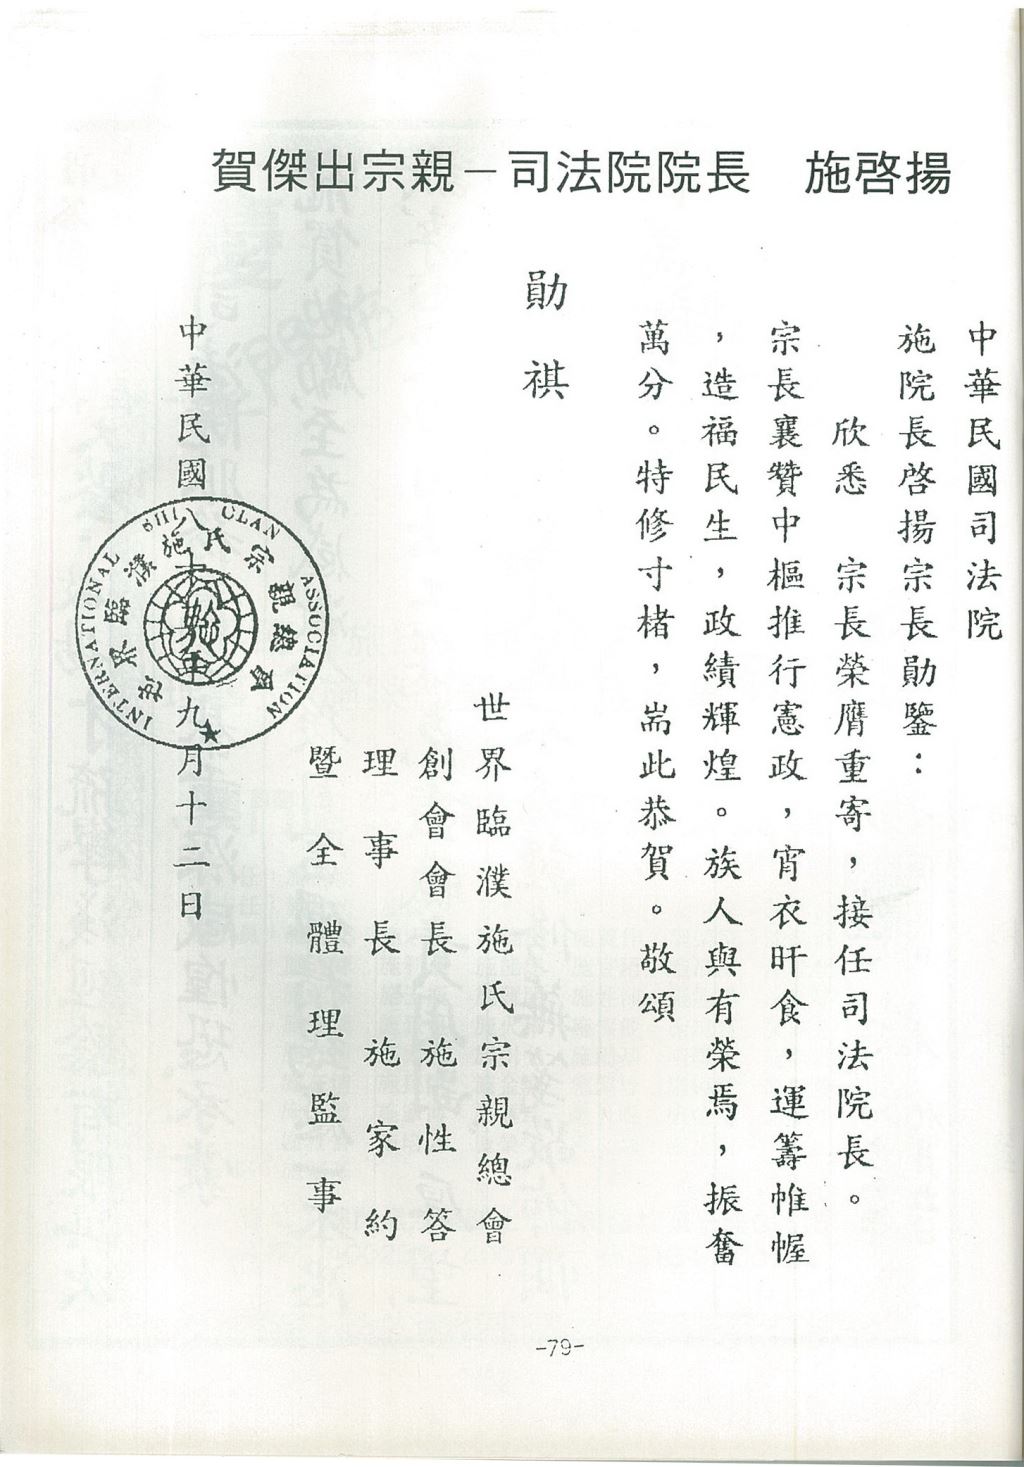 賀傑出宗親－司法院院長　施啓揚
中華民國司法院
施院長啓揚宗長勛鑒：
欣悉　宗長榮膺重寄，接任司法院長。
宗長襄贊中樞推行憲政，宵衣旰食，運籌帷幄
，造福民生，政績輝煌。族人與有榮焉，振奮
萬分。特修寸楮，耑此恭賀。敬頌
勛祺
世界臨濮施氏宗親總會
創會會長　施性答
理事長　施家約
暨全體理監事
中華民國八十三年九月十二日
INTERNATIONAL SHI CLAN ASSOCIATION
世界臨濮施氏宗親總會
施
-79-